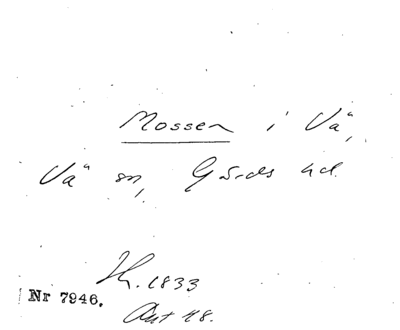 Mossen i Vä,
Vä sn, Gärds hd.
H. 1833
Nr 7946.
Akt 48.